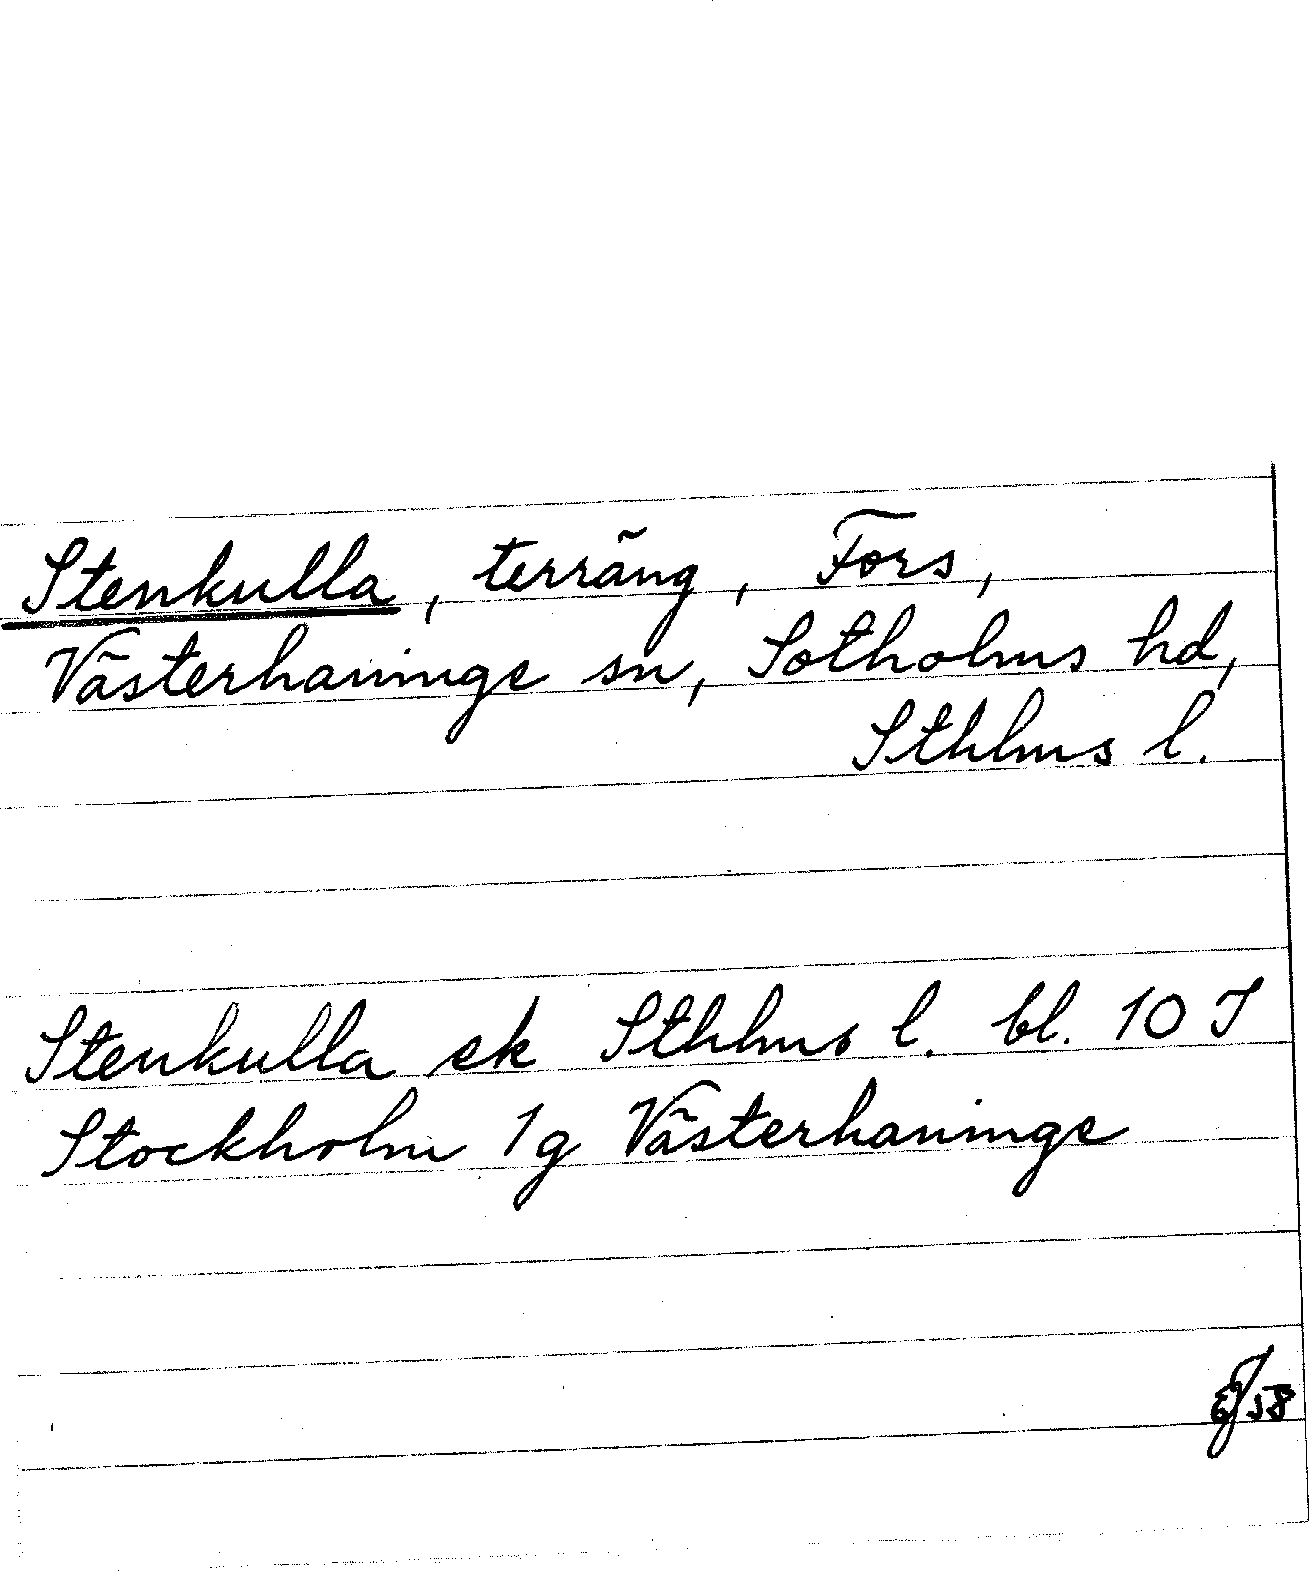 Stenkulla, terräng, Fors,
Västerhaninge sn, Sotholms hd,
Sthlms l.
Stenkulla ek Sthlms l. bl. 10 I
Stockholm 1g Västerhaninge
58